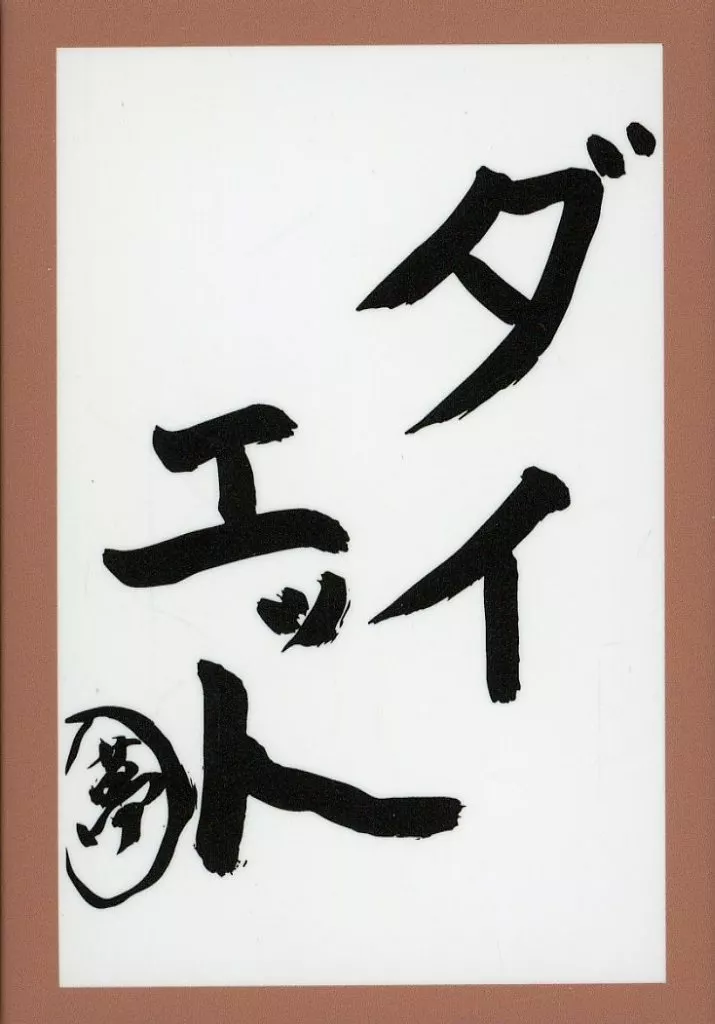 ダイ
エット
夢